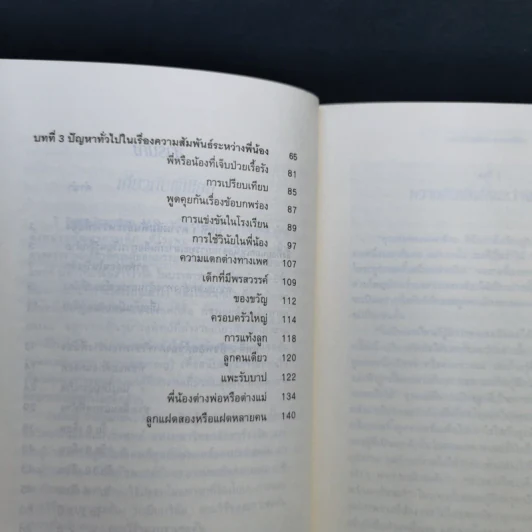 บทที่ 3 ปัญหาทั่วไปในเรื่องความสัมพันธ์ระหว่างพี่น้อง 65
พี่หรือน้องที่เจ็บป่วยเรื้อรัง 81
การเปรียบเทียบ 85
พูดคุยกันเรื่องข้อบกพร่อง 87
การแข่งขันในโรงเรียน 89
การใช้วินัยในพี่น้อง 97
ความแตกต่างทางเพศ 107
เด็กที่มีพรสวรรค์ 109
ของขวัญ 112
ครอบครัวใหญ่ 114
การแท้งลูก 118
ลูกคนเดียว 120
แพะรับบาป 122
พี่น้องต่างพ่อหรือต่างแม่ 134
ลูกแฝดสองหรือแฝดหลายคน 140